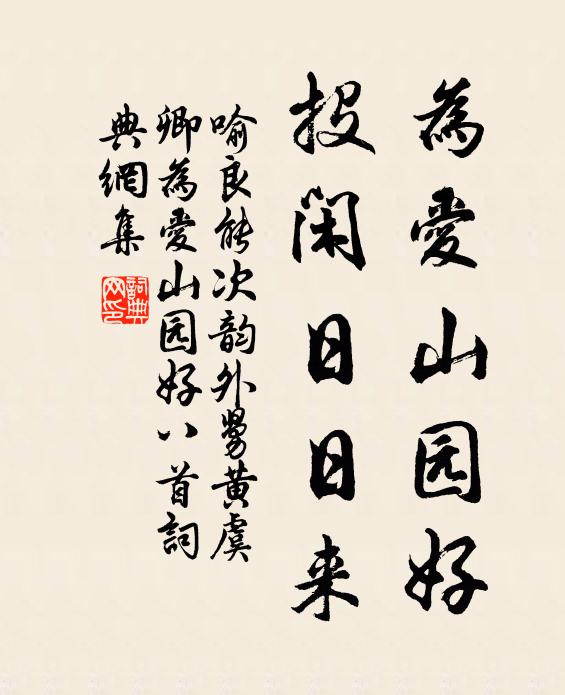 為愛山园好
投闲日日来
喻良能次韵外舅黄虞
卿為愛山园好八首詞
典網集
詞典网印